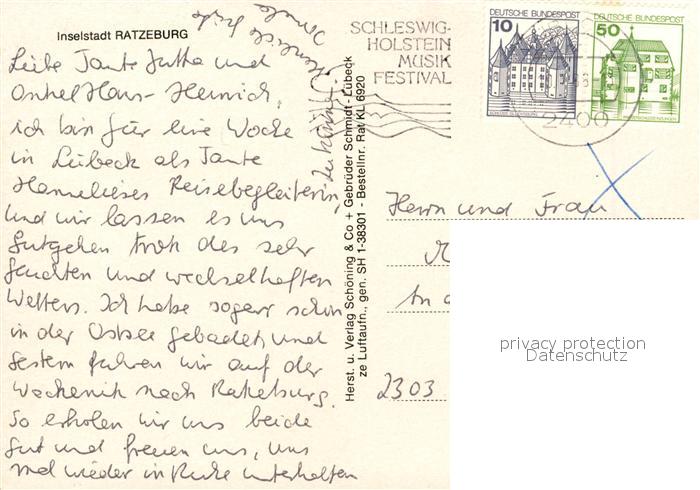 Inselstadt RATZEBURG
Liebe Tante Jutta und
Onkel Hans-Heinrich,
ich bin für eine Woche
in Lübeck als Tante
Hannelieses Reisebegleiterin,
und wir lassen es uns
gutgehen trotz des sehr
feuchten und wechselhaften
Wetters. Ich habe sogar schon
in der Ostsee gebadet, und
gestern fuhren wir auf der
Wackenitz nach Ratzeburg.
So erholen wir uns beide
gut und freuen uns, uns
mal wieder in Ruhe unterhalten
zu können.
Herzliche Grüße
Herst. u. Verlag Schöning & Co + Gebrüder Schmidt - Lübeck
ze Luftaufn., gen. SH 1-38301 - Bestellnr. Rat KL 6920
SCHLESWIG-
HOLSTEIN
MUSIK
FESTIVAL
10 DEUTSCHE BUNDESPOST
50 DEUTSCHE BUNDESPOST
2400
Herrn und Frau
An d
2303
privacy protection
Datenschutz